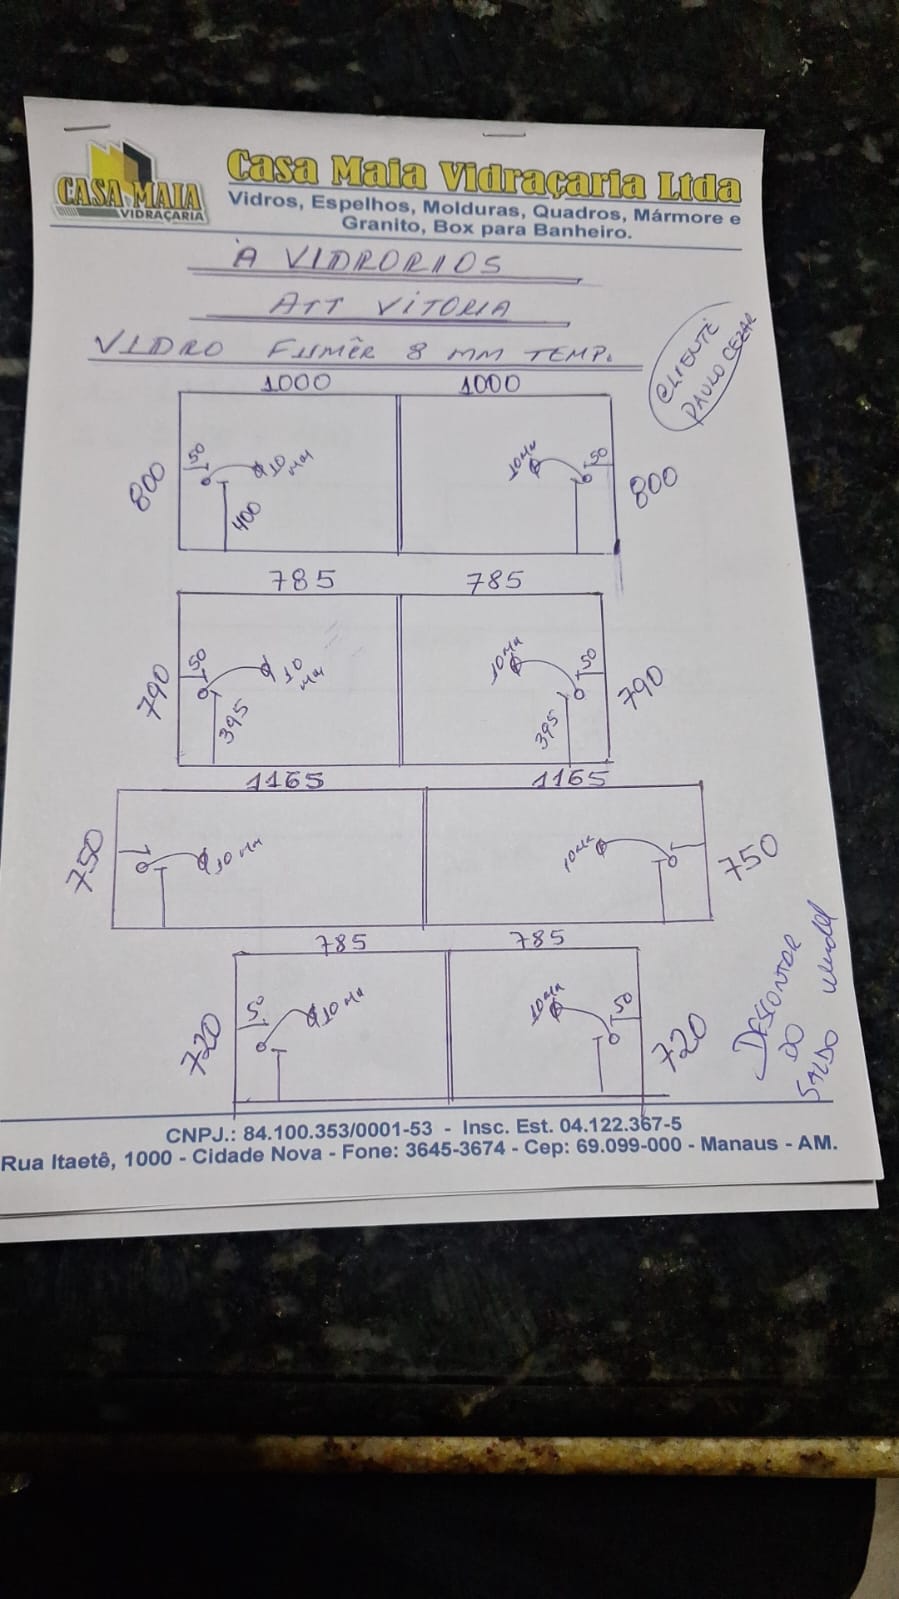 CASA MAIA
VIDRAÇARIA
Casa Maia Vidraçaria Ltda
Vidros, Espelhos, Molduras, Quadros, Mármore e
Granito, Box para Banheiro.
À VIDRORIOS
ATT VITORIA
VIDRO FUMÊR 8 MM TEMP.
CLIENTE
PAULO CEZAR
1000 1000
800 50 10 MM 400 10 MM 50 800
785 785
790 50 10 MM 395 10 MM 50 395 790
1165 1165
750 10 MM 10 MM 750
785 785
720 50 10 MM 10 MM 50 720
DESCONTAR
DO
SALDO
CNPJ.: 84.100.353/0001-53 - Insc. Est. 04.122.367-5
Rua Itaetê, 1000 - Cidade Nova - Fone: 3645-3674 - Cep: 69.099-000 - Manaus - AM.